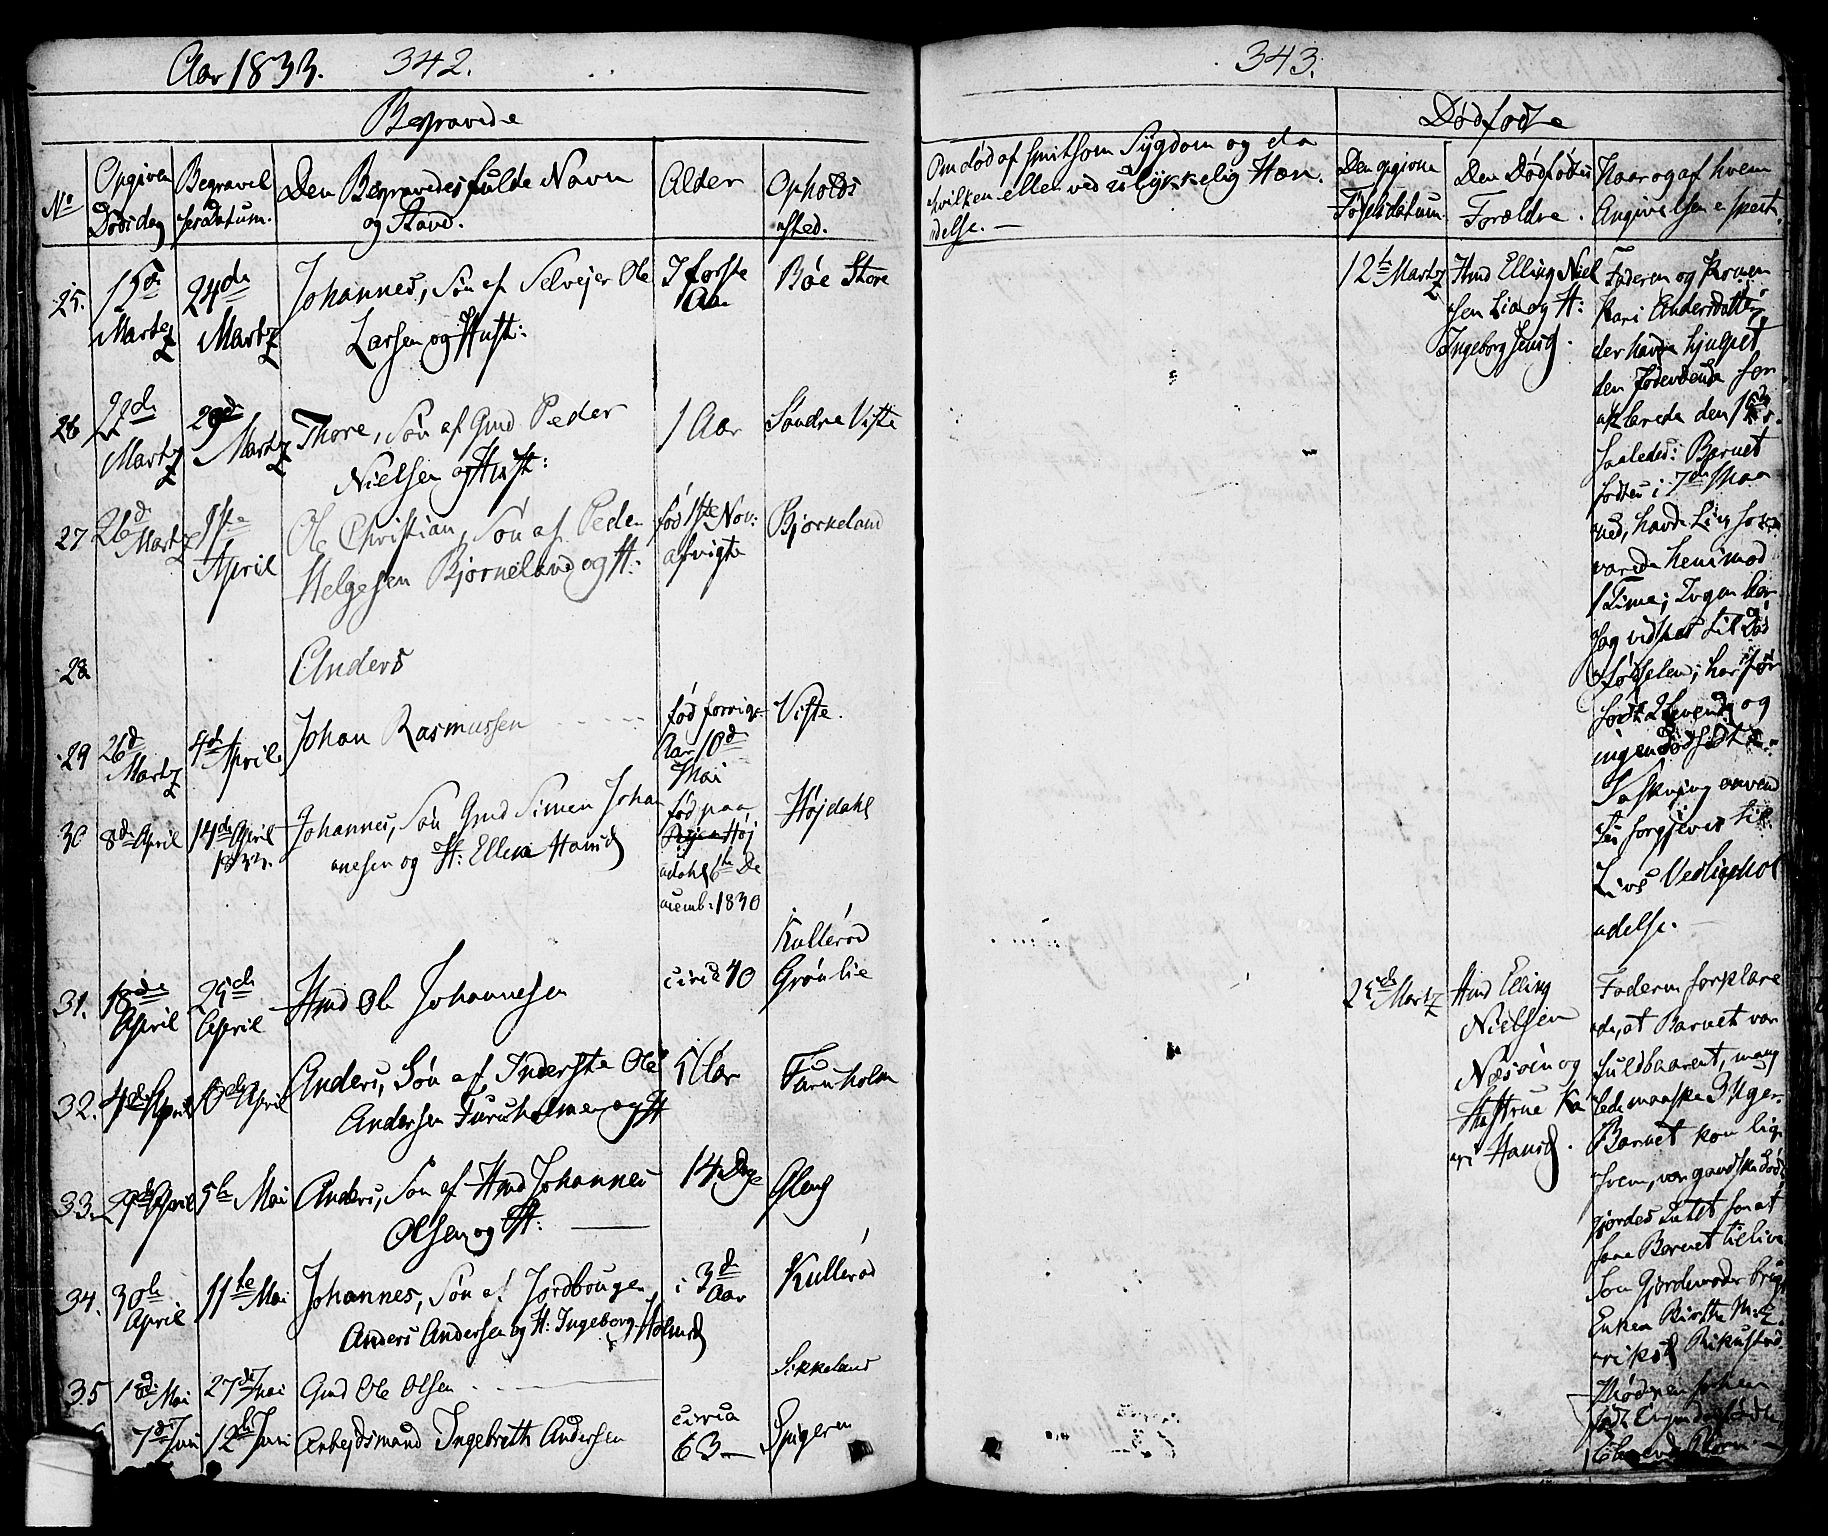 Aar 1833. 342.
Begravede
No
Opgiven Dødsdag
Begravelsesdatum.
Den Begravedes fulde Navn og Stand.
Alder
Opholdssted.
25. 15de Martz 24de Martz Johannes, Søn af Selvejer Ole Larsen og Hust: I første Aar Bøe Store
26 22de Martz 29de Martz Thore, Søn af Gmd Peder Nielsen og Hust: 1 Aar Søndre Viste
27 26d Martz 1ste April Ole Christian, Søn af Peder Helgesen Bjørneland og H: fød 1ste Nov: afvigte Bjørkeland
28 Anders
29 26d Martz 4de April Johan Rasmussen fød forrige Aar 10d Mai Viste.
30 8de April 14de April 1833. Johannes, Søn Gmd Simen Johannesen og H: Ellen Hansd fød paa Højdahl 6te Decemb: 1830 Højdahl
31. 18de April 25de April Hmd Ole Johannesen circa 40 Kullerød Grønlie
32. 4de April April Anders, Søn af Inderste Ole Andersen Furuholmen og H Aar Furuholm
33. April 5te Mai Anders, Søn af Hmd Johannes Olsen og H: 14 Dage Gleng
34. 30te April 11te Mai Johannes, Søn af Jordbruger Anders Andersen og H: Ingeborg Holmsd i 3d Aar Kullerød
35 Mai 27de Mai Gmd Ole Olsen Sikkeland
7de Juni 12te Juni Arbejdsmand Ingebreth Andersen circa 63 Spigeren
343.
Dødfødte
Om død af smitsom Sygdom og da
hvilken eller ved ulykkelig Hæn-
delse.
Den opgivne Fødselsdatum.
Den Dødfødtes Forældre.
Naar og af hvem Angivelsen e skeet.
12te Martz
Hmd Elling Niel
sen Lia og H:
Ingeborg Jensd.
Faderen og Konen
Kari Andersdatter,
der havde hjulpet
den Fødende for
klarede den
saaledes: Barnet
fødtes i 7de Maa
ned, havde Liv
varede henimod
1 Time; Ingen Aar
sag vidstes til Død
fødselen; har før
født 2 levende og
ingen Dødfødte.
Vaskning anvend
tes forgjeves til
Livs Vedligehol
delse.
25de Martz
Hmd Elling
Nielsen
Næsøen og
Hustrue Ka
ri Hansd.
Faderen forklare
de, at Barnet var
fuldbaarent, mang
lede maaske 3 Uger.
Barnet kom lig
frem, var gandske død
gjordes Intet for at
faae Barnet tillive
Som Gjordemoder brugt
Enken Birthe
Rikustad.
Moderen